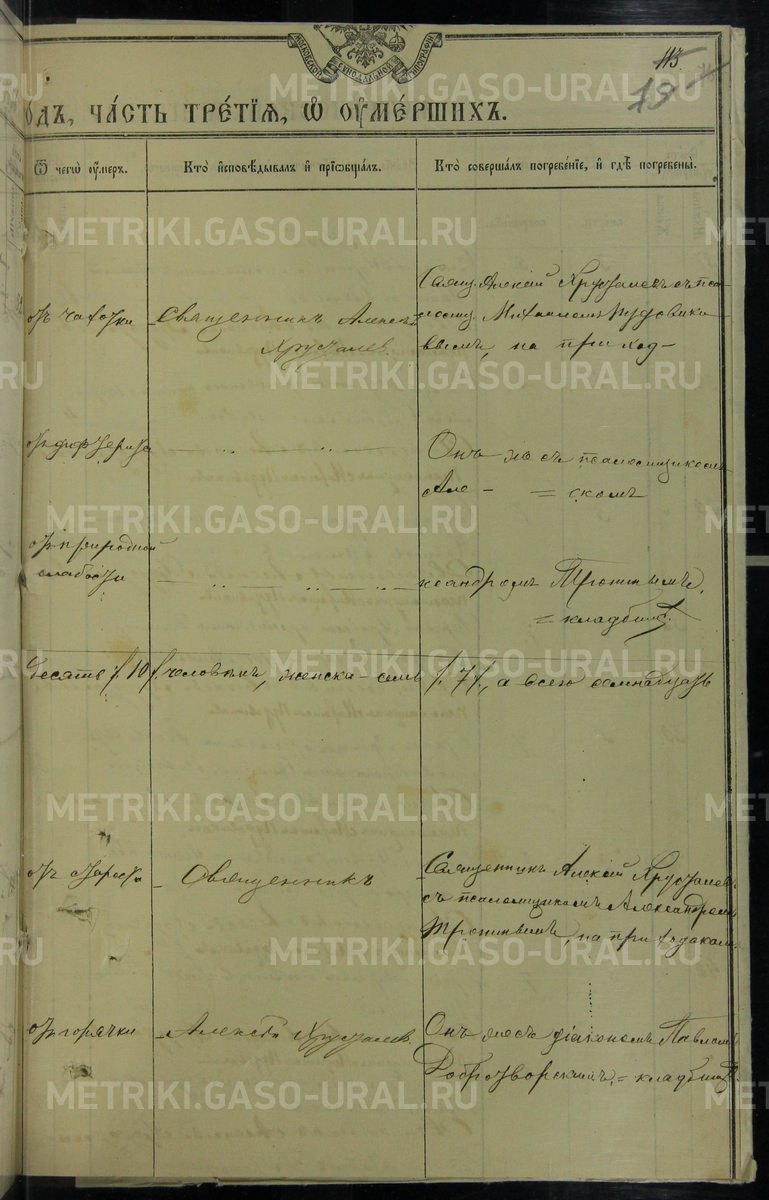 113
19
одъ, ча́сть тре́тїѧ, ѡ҆ ᲂу҆ме́ршихъ.
Ѿ чегѡ̀ ᲂу҆́меръ.
Кто̀ и҆сповѣ́дывалъ и҆ прїѡбща́лъ.
Кто̀ соверша́лъ погребе́нїе, и҆ гдѣ̀ погребены̀.
отъ чахотки
Священникъ Алексѣй
Хрусталев
Свящ. Алексій Хрусталевъ съ пса-
ломщ. Михаиломъ
на приход-
отъ дифтерита
Онъ же съ псаломщикомъ
Але- = скомъ
отъ природной
слабости
ксандромъ Тронинымъ,
= кладбищѣ
десять /.10/. человѣкъ, женска – семь /.7/., а всего семнадцать
отъ старости
Священникъ
Священникъ Алексій Хрусталевъ
съ псаломщикомъ Александромъ
Тронинымъ, на приходском
отъ горячки
Алексѣй Хрусталев
Онъ же съ діакономъ Павломъ
Добротворскимъ, = кладбищѣ.
METRIKI.GASO-URAL.RU